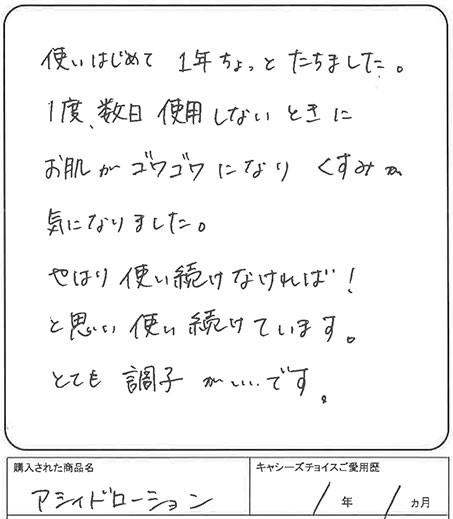 使いはじめて 1年ちょっと たちました。
1度、数日 使用しないときに
お肌が ゴワゴワになり くすみが
気になりました。
やはり 使い続けなければ!
と思い 使い続けています。
とても 調子がいいです。
購入された商品名
キャシーズチョイスご愛用歴
アシィドローション
/ 年 / ヵ月